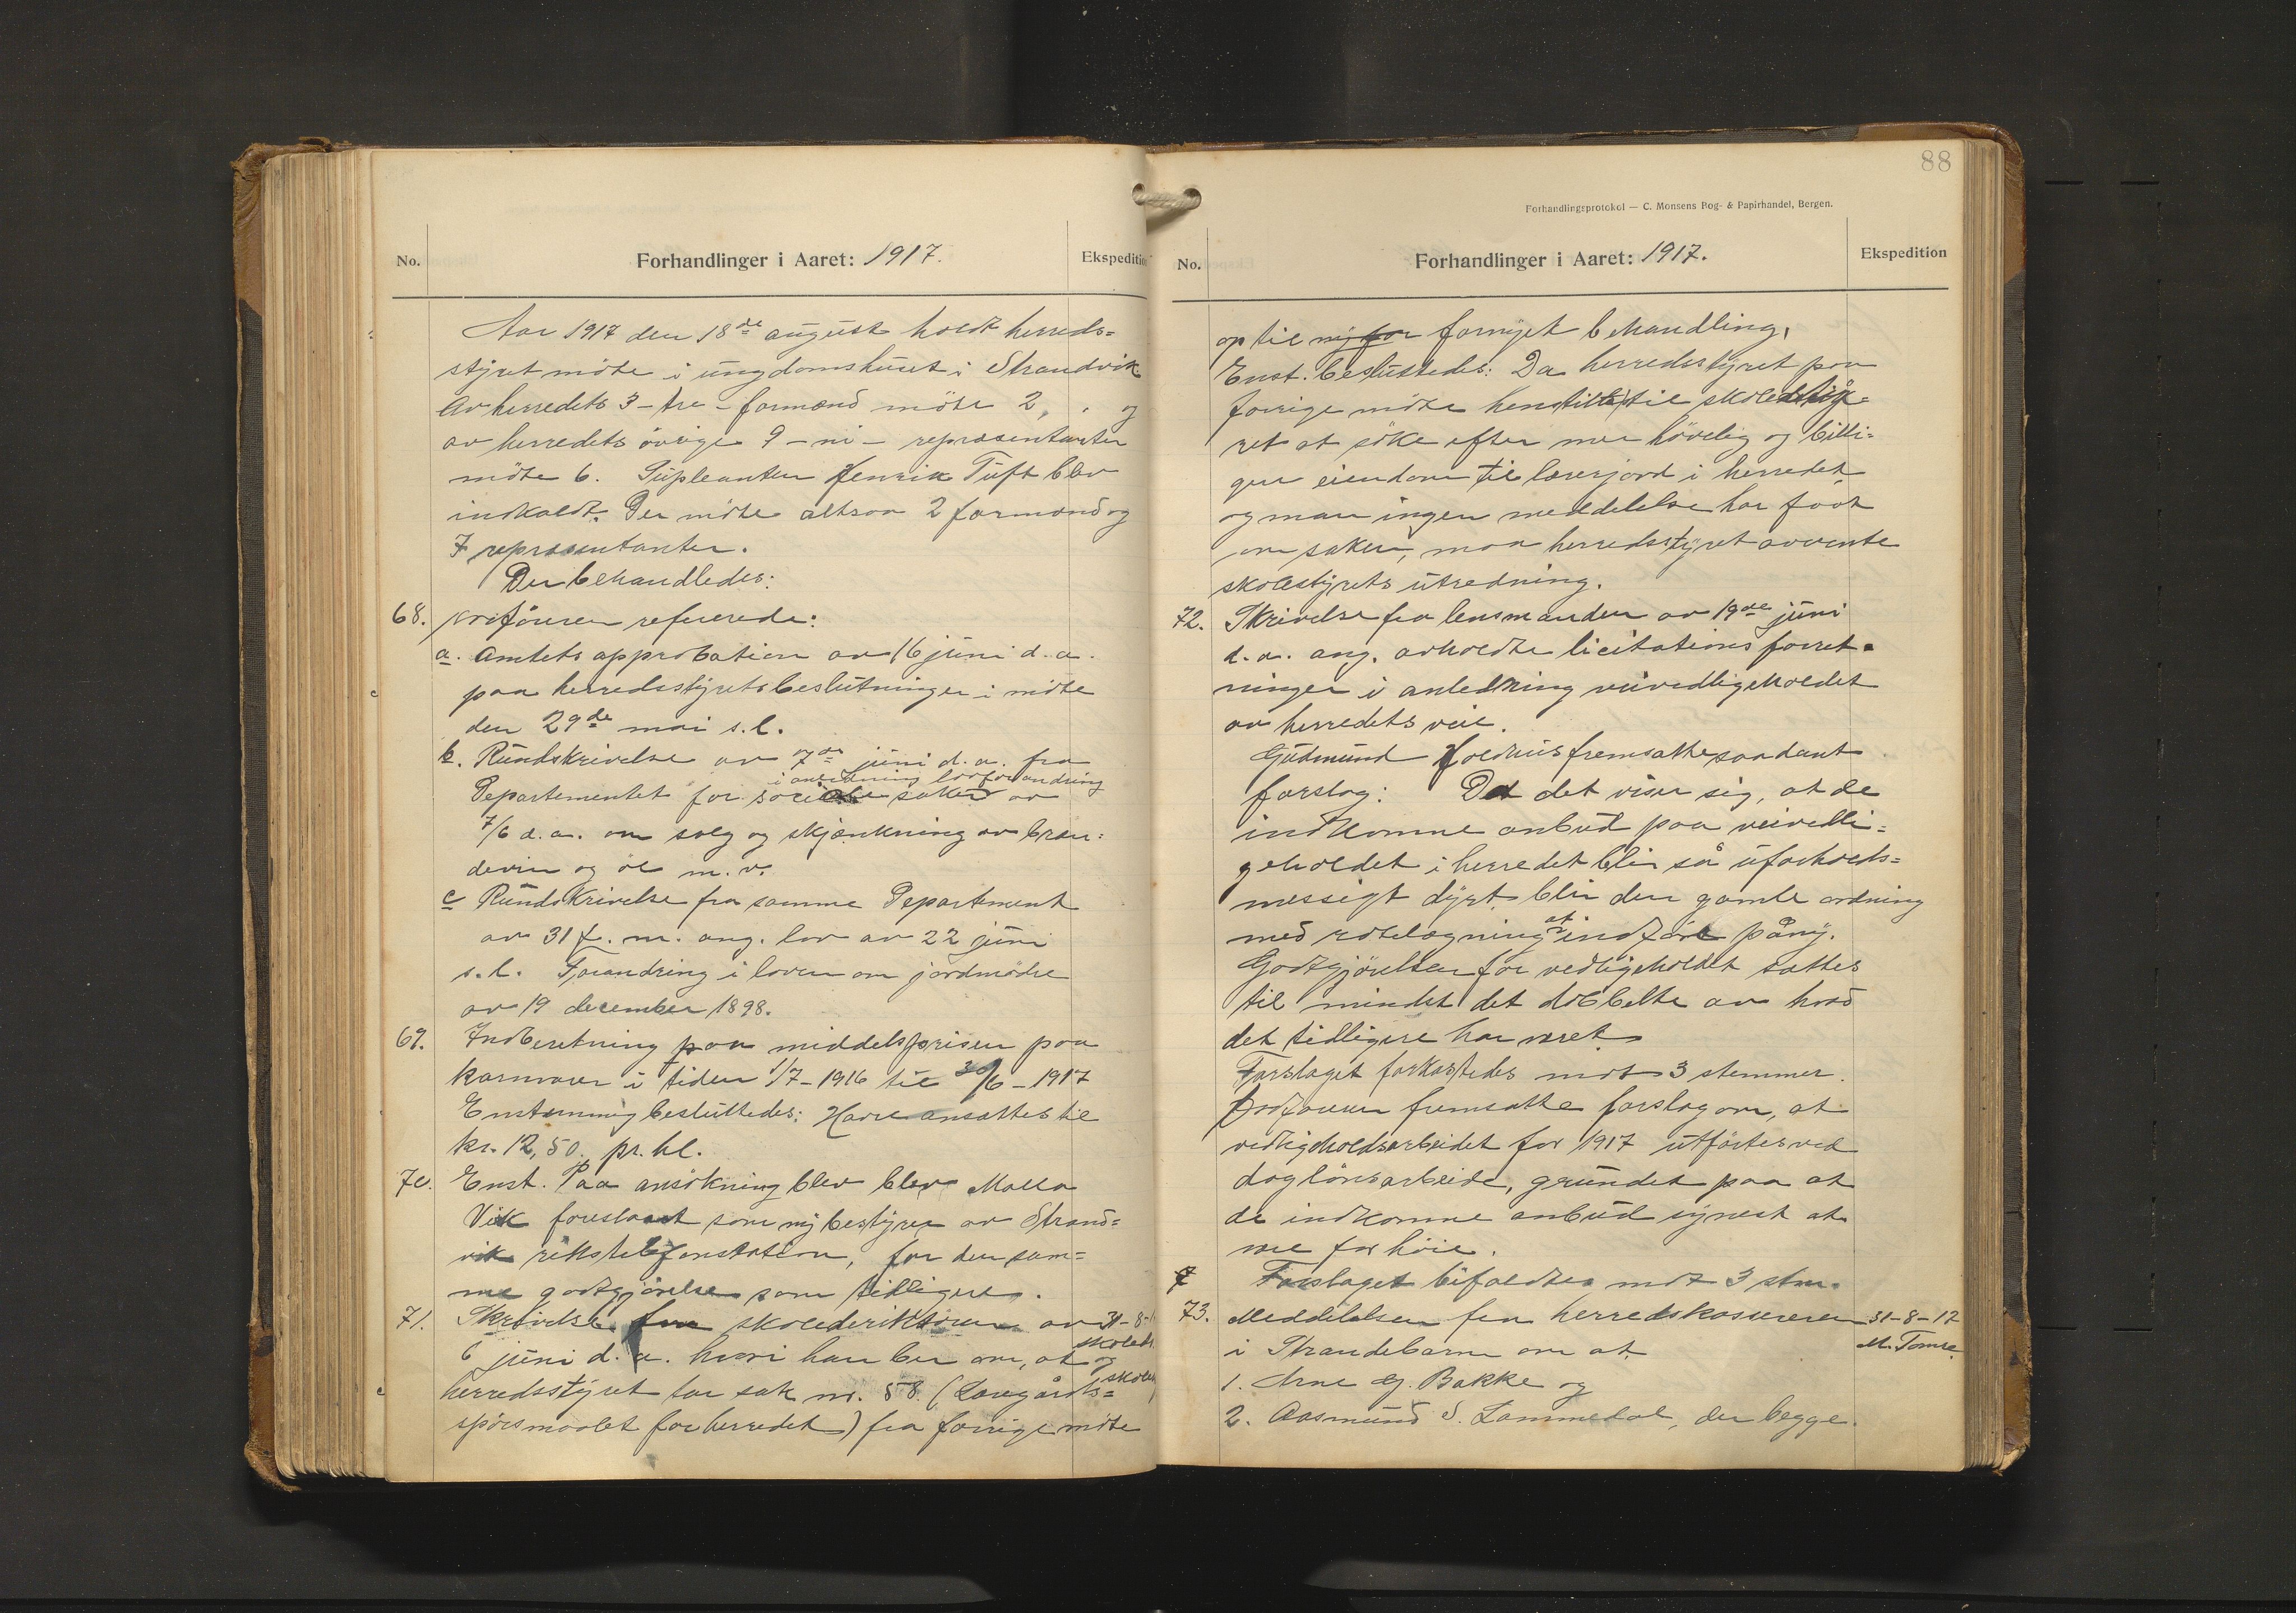 No.
Forhandlinger i Aaret: 1917.
Ekspeditio
Aar 1917 den 18de august holdt herreds=
styret möte i ungdomshuset i Strandvik
Av herredets 3-tre-formænd mötte 2, og
av herredets övrige 9-ni- representanter
mötte 6. Supleanten Henrik Tuft blev
indkaldt. Der mötte altsaa 2 formænd og
7 representanter.
Der behandledes:
68. Ordföreren refererede:
a. Amtets approbation av 16 juni d.a.
paa herredsstyrets beslutninger i möte
den 29de mai s.l.
b. Rundskrivelse av 7de juni d.a. fra
i anledning lovforandring
Departementet for sociale saker av
7/6 d.a. om salg og skjænkning av bræn=
devin og öl m.v.
c Rundskrivelse fra samme Departement
av 31 f.m. ang. lov av 22 juni
s.l. Forandring i loven om jordmödre
av 19 december 1898.
69. Indberetning paa middelsprisen paa
kornvarer i tiden 1/7-1916 til 30/6-1917
Enstemmig besluttedes: Havre ansættes til
kr. 12,50. pr. hl.
70. Enst. Paa ansökning blev blev Malla
Vik foreslaat som ny bestyrer av Strand=
vik rikstelefonstation, for den sam=
me godtgjörelse som tidligere.
71. Skrivelse fra skoledirektören av 31-8-1
6 juni d.a. hvori han ber om, at og
herredsstyret tar sak nr. 58. (Læregårds=
spörsmaalet for herredet) fra forrige möte
88
Forhandlingsprotokol — C. Monsens Bog- & Papirhandel, Bergen.
No.
Forhandlinger i Aaret: 1917.
Ekspedition
op til ny for fornyet behandling.
Enst. besluttedes: Da herredsstyret paa
forrige möte henstillet til skolesty=
ret at söke efter mer hövelig og billi=
gere eiendom til lærerjord i herredet,
og man ingen meddelelse har faat
om saken, maa herredsstyret avvente
skolestyrets utredning.
72. Skrivelse fra lensmanden av 19de juni
d.a. ang. avholdte licitationsforret=
ninger i anledning veivedligeholdet
av herredets veie.
Gudmund Holdhus fremsatte saadant
forslag: Da det viser sig, at de
indkomne anbud paa veivedli=
geholdet i herredet blir så uforholds=
messigt dyrt blir den gamle ordning
med rodelægning at indföre påny.
Godtgjörelsen for vedligeholdet sættes
til mindst det dobbelte av hvad
det tidligere har været.
Forslaget forkastedes mot 3 stemmer.
Ordföreren fremsatte forslag om, at
vedligeholdsarbeidet for 1917 utförtes ved
daglönsarbeide, grundet paa at
de indkomne anbud synest at
vere for höie.
Forslaget bifaldtes mot 3 stm.
73. Meddelelsen fra herredskassereren 31-8-17
i Strandebarm om at M. Tomre
1. Arne G. Bakke og
2. Aasmund S. Lammedal, der begge